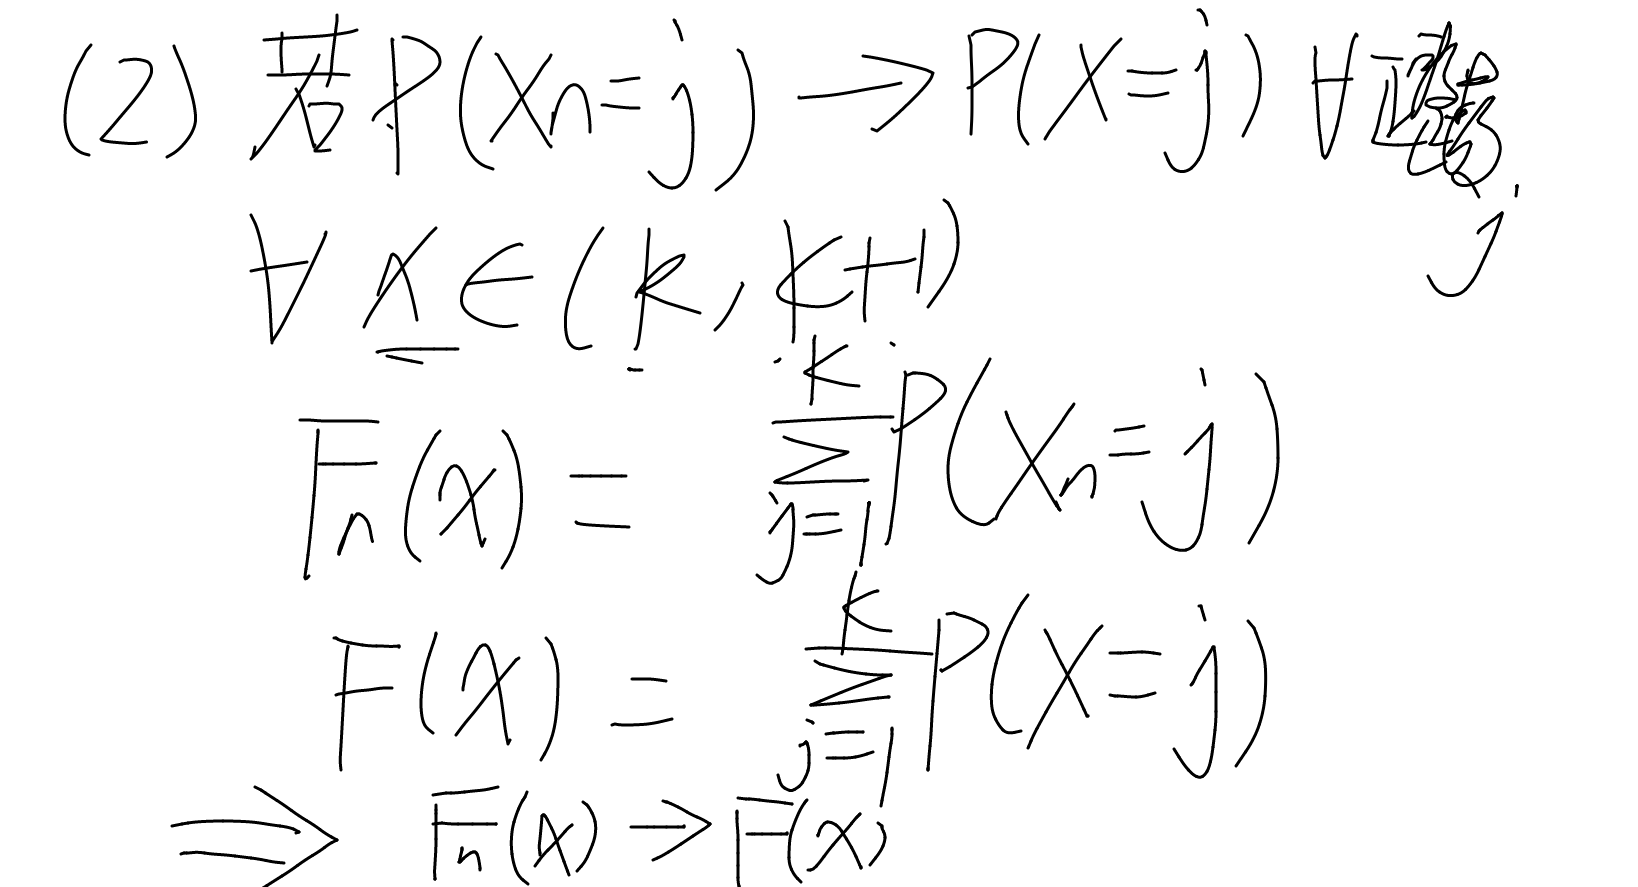 (2) 若 P(Xn=j) → P(X=j) ∀
j
∀ x ∈ (k, k+1)
Fn(x) = ∑_{j=1}^{k} P(Xn=j)
F(x) = ∑_{j=1}^{k} P(X=j)
⇒ Fn(x) → F(x)